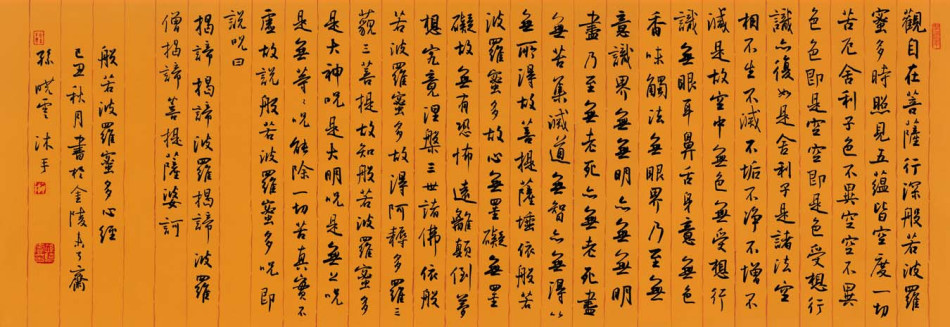 觀自在菩薩行深般若波羅
蜜多時照見五蘊皆空度一切
苦厄舍利子色不異空空不異
色色即是空空即是色受想行
識亦復如是舍利子是諸法空
相不生不滅不垢不淨不增不
減是故空中無色無受想行
識無眼耳鼻舌身意無色
香味觸法無眼界乃至無
意識界無無明亦無無明
盡乃至無老死亦無老死盡
無苦集滅道無智亦無得以
無所得故菩提薩埵依般若
波羅蜜多故心無罣礙無罣
礙故無有恐怖遠離顛倒夢
想究竟涅槃三世諸佛依般
若波羅蜜多故得阿耨多羅三
藐三菩提故知般若波羅蜜多
是大神呪是大明呪是無上呪
是無等〻呪能除一切苦真實不
虛故説般若波羅蜜多呪即
説呪曰
揭諦揭諦波羅揭諦波羅
僧揭諦菩提薩婆訶
般若波羅蜜多心經
己丑秋月書於金陵齋
孫曉雲沐手